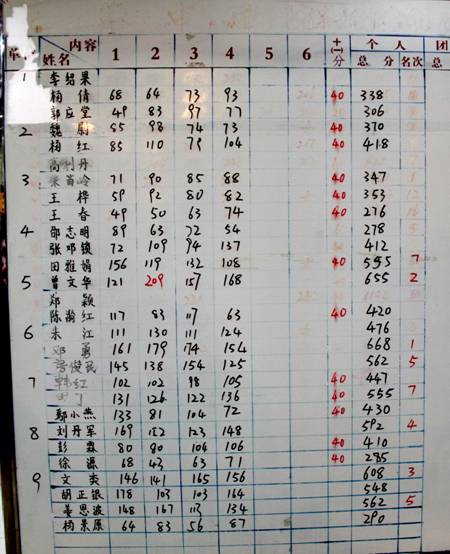 单 内容 姓名 1 2 3 4 5 6 +(-)分 个人 总分 名次 团 总
1 李绍果
杨倩 68 64 73 93 40 338
郭应堂 49 83 97 77 306
2 魏尉 85 98 74 73 40 370
杨红 85 110 79 104 40 418
高利丹
3 岭 71 90 85 88 40 347
王桦 59 92 80 82 40 353
王春 49 50 63 74 40 276
4 邵志明 89 63 72 54 278
张邓镇 72 109 94 137 412
田雅娟 156 119 132 108 40 555 7
5 曾文华 121 209 157 168 655 2
郑颖
陈瀚红 117 83 117 63 40 420
6 朱江 111 130 111 124 476
邓勇 161 179 174 154 668 1
俊民 145 138 154 125 562 5
7 韩红 102 102 98 105 40 447
田丁 131 126 122 136 40 555 7
鄢小燕 133 81 104 72 40 430
8 刘丹军 169 152 123 148 592 4
彭霖 80 80 104 106 40 410
徐源 68 43 63 71 40 285
9 文奕 146 141 165 156 608 3
胡正银 178 103 103 164 548
姜思波 148 167 113 134 562 5
杨景原 64 83 56 87 290